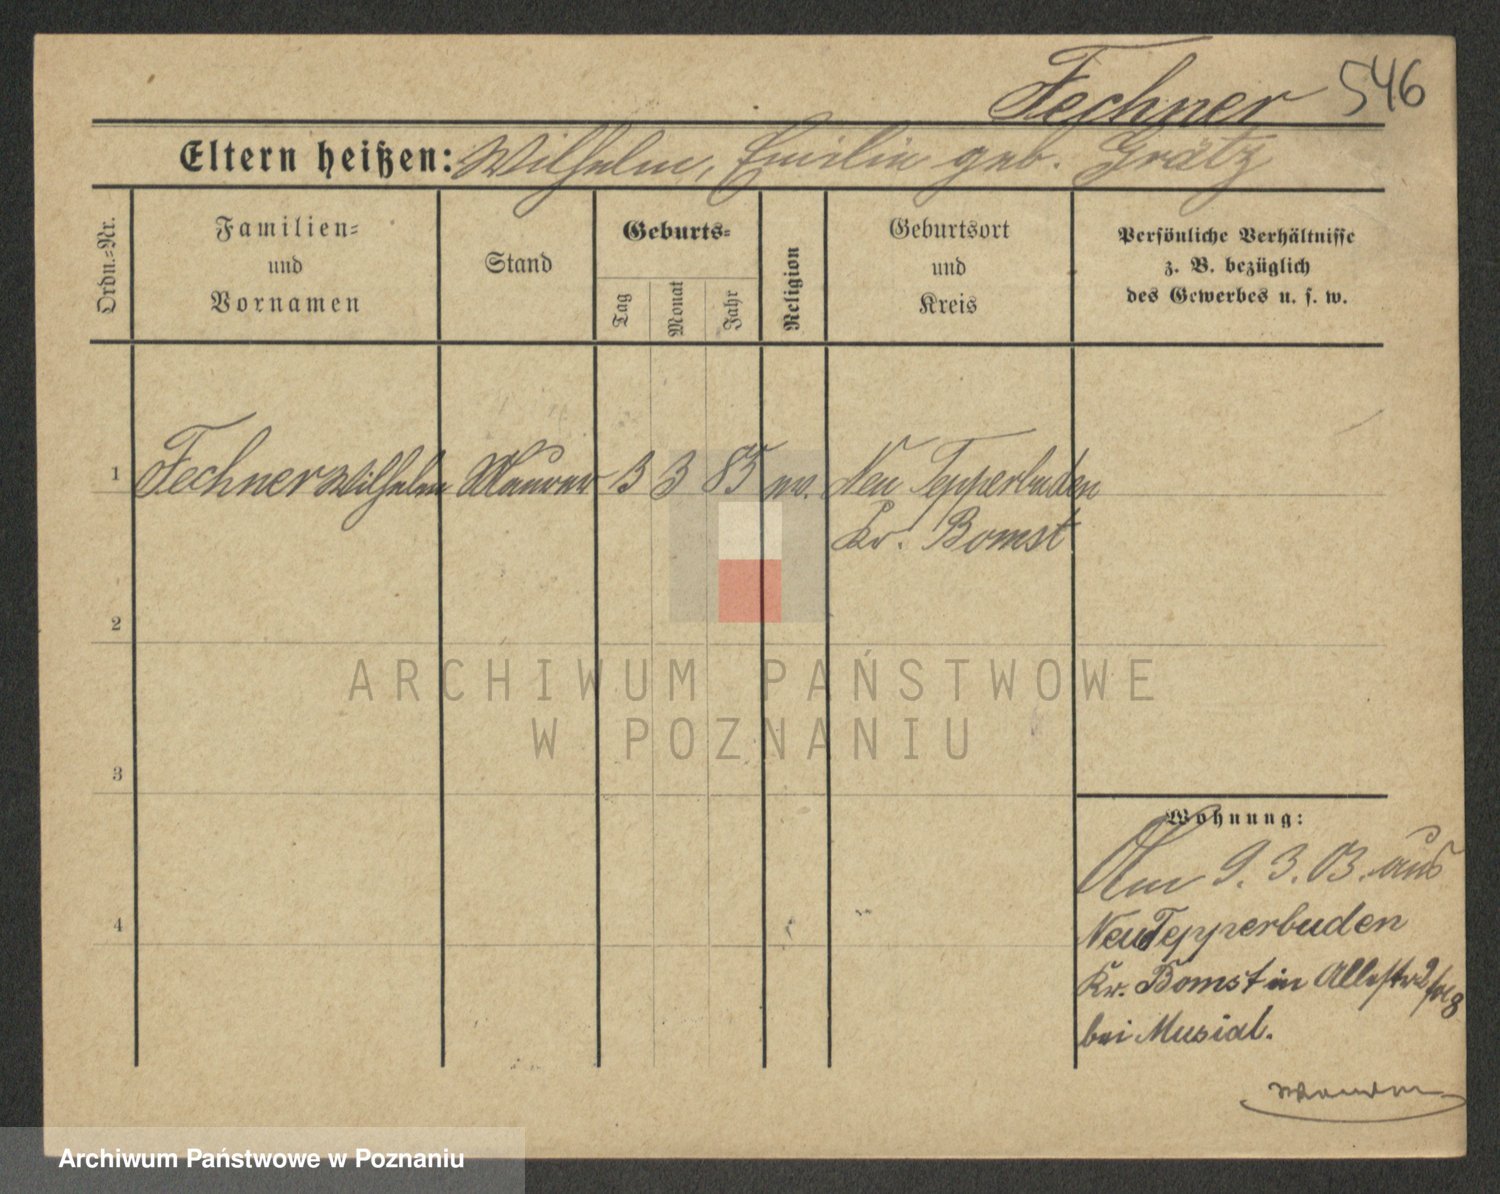 Fechner 546
Eltern heißen: Wilhelm, Emilie geb. Grätz
Ordn.-Nr.
Familien-
und
Vornamen
Stand
Geburts-
Tag
Monat
Jahr
Religion
Geburtsort
und
Kreis
Persönliche Verhältnisse
z. B. bezüglich
des Gewerbes u. s. w.
1 Fechner Wilhelm Maurer 13 3 85 ev. Neu Tepperbuden
Kr. Bomst
2
ARCHIWUM PAŃSTWOWE
W POZNANIU
3
Wohnung:
Am 9. 3. 03. aus
4
Neu Tepperbuden
Kr. Bomst in
bei Musial.
Archiwum Państwowe w Poznaniu